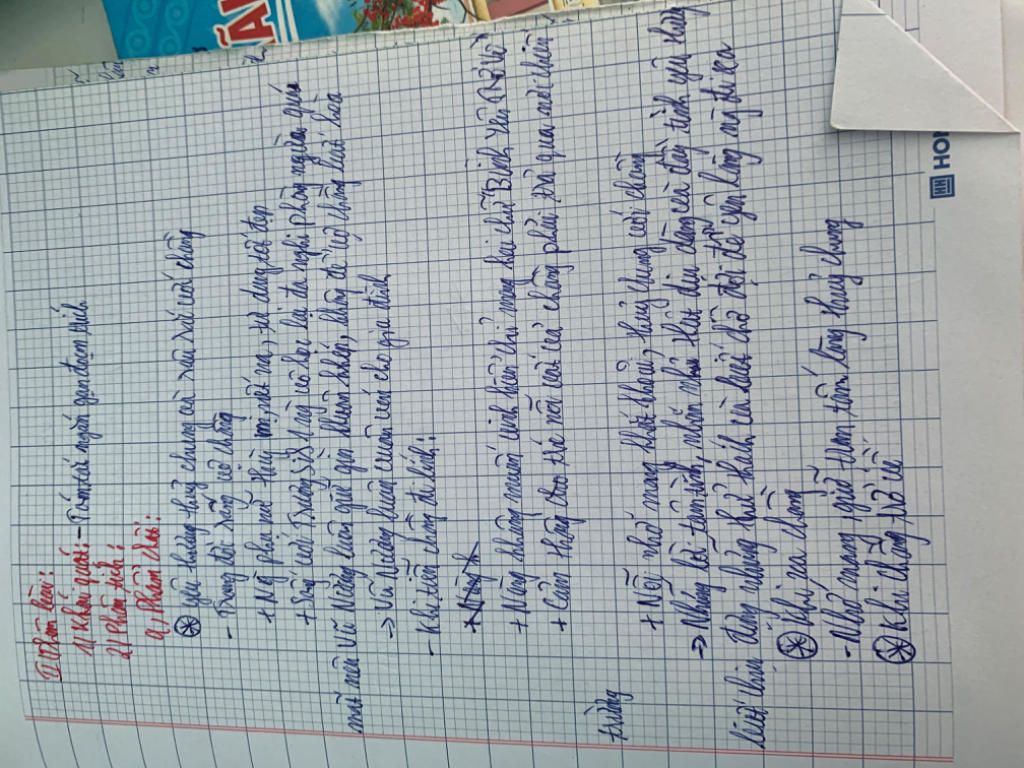 II, Thân bài:
1) Khái quát: - Tóm tắt ngắn gọn đoạn trích
2) Phân tích:
a, Phẩm chất:
* yêu thương thủy chung và sâu sắc với chồng
- Trong đời sống vợ chồng
+ Ng phụ nữ thùy mị, nết na, tư dung tốt đẹp
+ Sống với Trương Sinh là vợ hay lại đa nghi, phòng ngừa quá
mức nên Vũ Nương luôn giữ gìn khuôn phép, không để vợ chồng thất hòa
-> Vũ Nương luôn vun vén cho gia đình
- Khi tiễn chồng đi lính:
+ Nàng không mong vinh hiển chỉ mong hai chữ "Bình yên" trở về
+ Cảm thông cho nỗi vất vả chồng phải trải qua nơi chiến
trường
+ Nỗi nhớ mong khắc khoải, thủy chung với chồng
=> Những lời tâm tình, nhắn nhủ hết dịu dàng và đầy tình yêu thương
của ng chồng và chờ đợi để yên lòng ng đi xa
* Khi xa chồng
- Nhớ mong, giữ trọn tấm lòng thuỷ chung
* Khi chồng trở về
HON